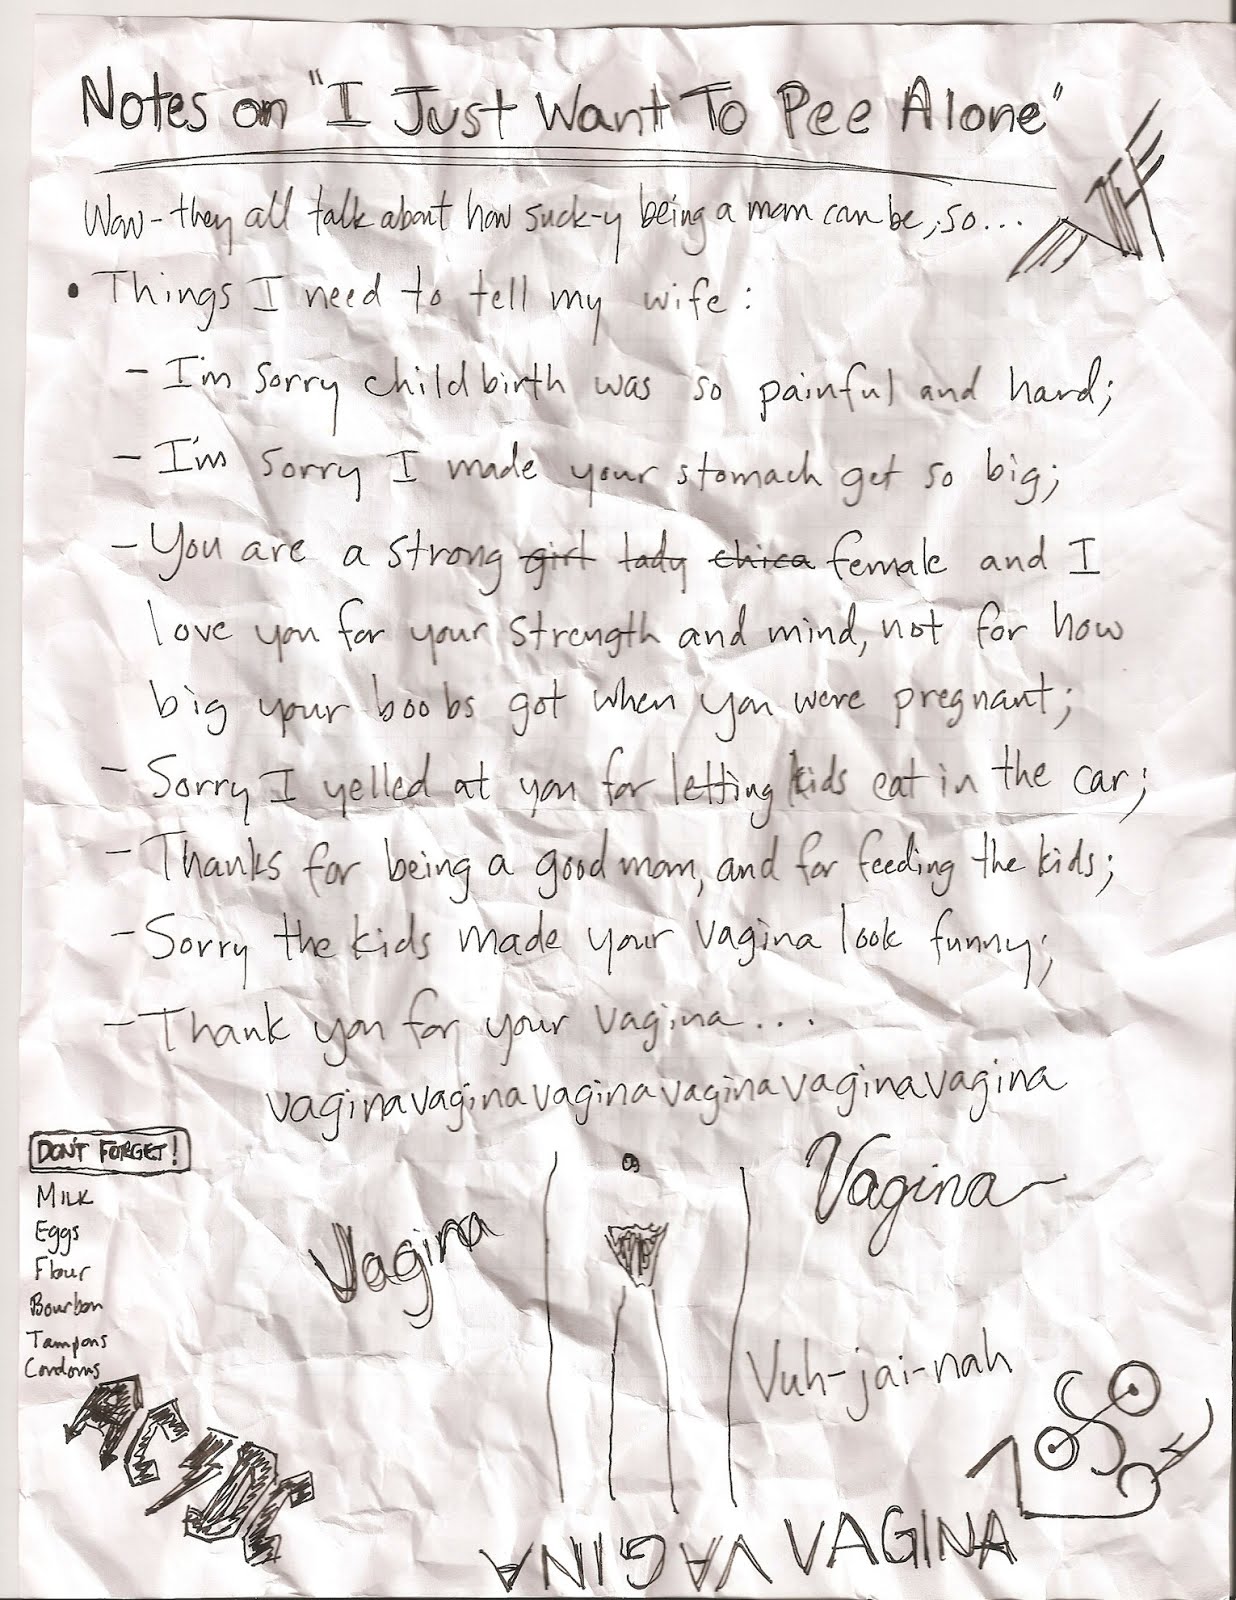 Notes on "I Just Want To Pee Alone"
Wow - they all talk about how suck-y being a mom can be, so...
• Things I need to tell my wife:
- I'm sorry childbirth was so painful and hard;
- I'm sorry I made your stomach get so big;
- You are a strong girl lady chica female and I
love you for your strength and mind, not for how
big your boobs got when you were pregnant;
- Sorry I yelled at you for letting kids eat in the car;
- Thanks for being a good mom, and for feeding the kids;
- Sorry the kids made your vagina look funny;
- Thank you for your vagina...
vaginavaginavaginavaginavaginavagina
DON'T FORGET!
MILK
Eggs
Flour
Bourbon
Tampons
Condoms
Vagina
Vagina
Vuh-jai-nah
AC⚡DC
VAGINA
VAGINA